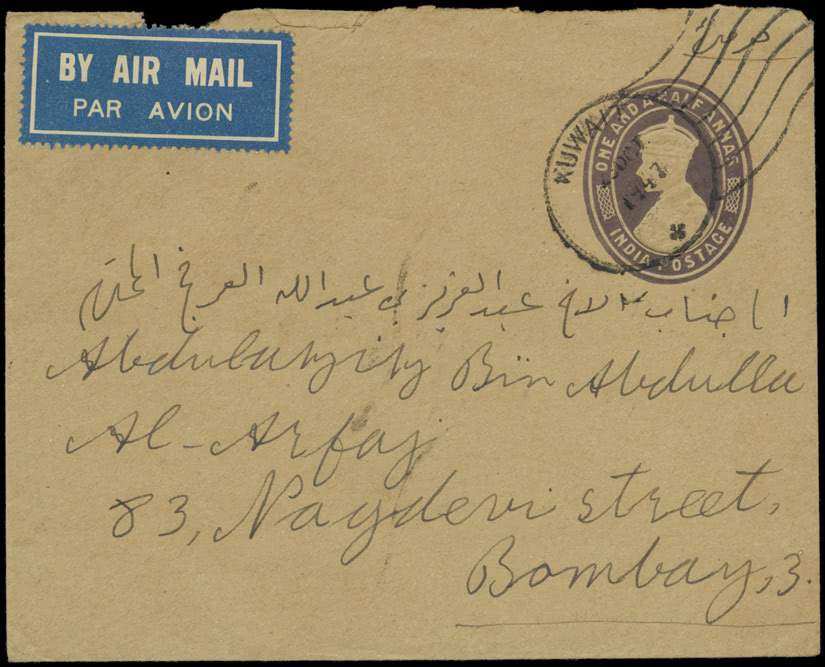 BY AIR MAIL
PAR AVION
KUWAIT
OCT
ONE AND A HALF ANNAS
INDIA POSTAGE
الاخ عبد العزيز بن عبد الله العرفج المحترم
Abdulazizj Bin Abdulla
Al-Arfaj
83, Nagdevi street,
Bombay, 3.